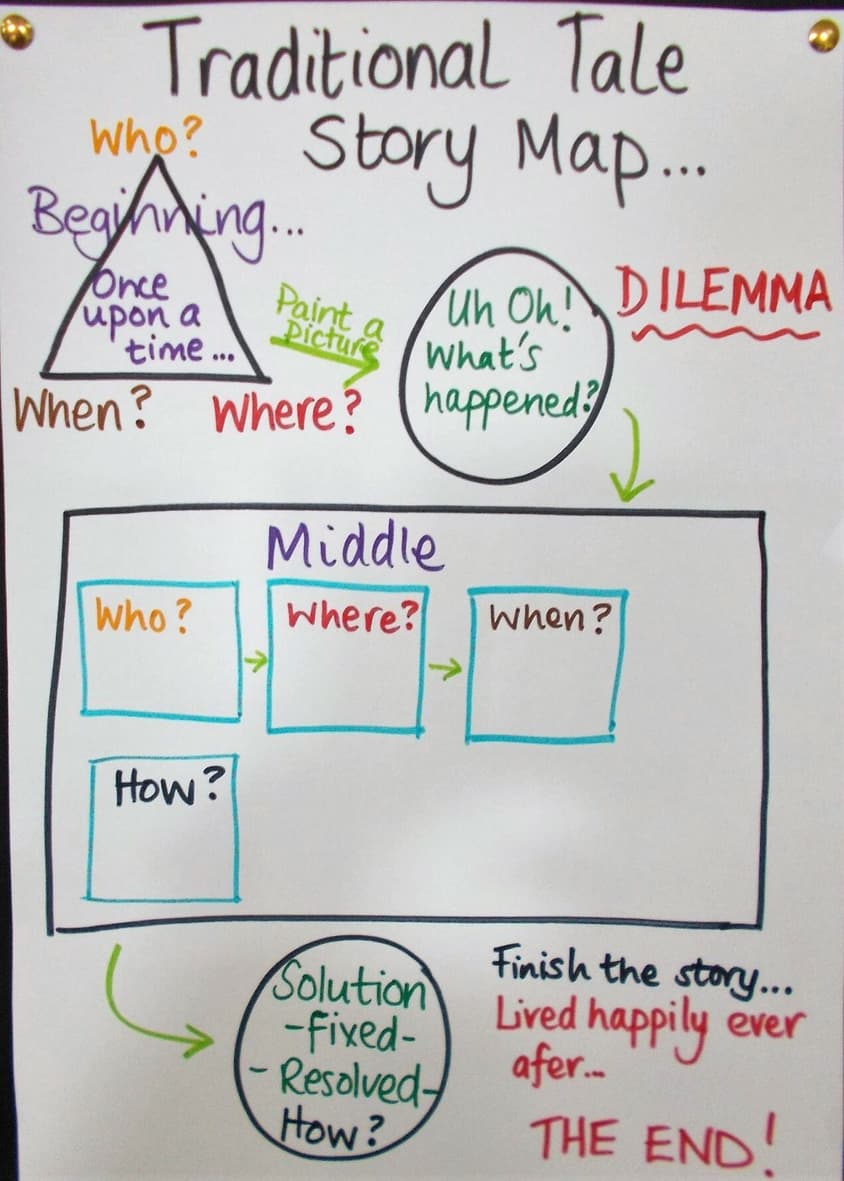 Traditional Tale
Story Map...
Who?
Beginning...
Once
upon a
time...
When?
Where?
Paint a
Picture
Uh Oh!
What's
happened?
DILEMMA
Middle
Who?
Where?
When?
How?
Solution
-Fixed-
- Resolved-
How?
Finish the story...
Lived happily ever
afer...
THE END!